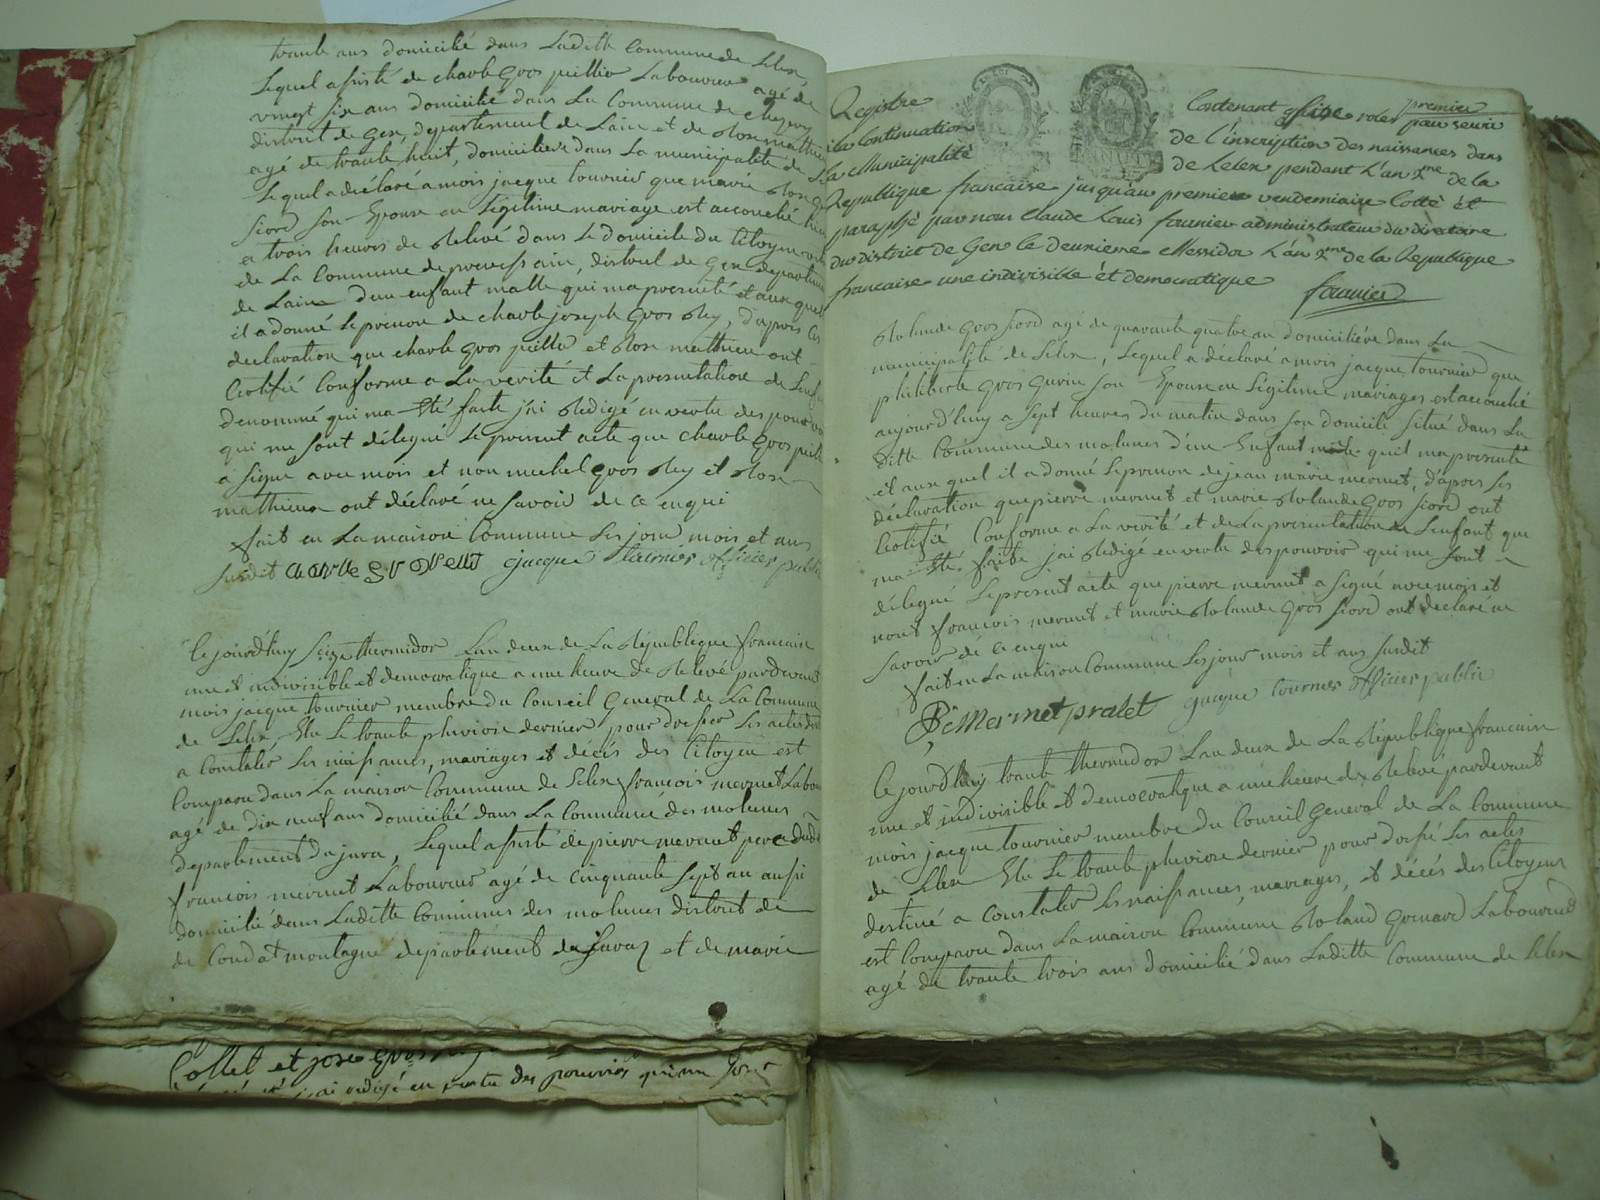 trante ans domicilié dans Laditte Commune de Lelex,
Lequel assisté de charle Gros piellier Laboureur agé de
vingt six ans domicilié dans La Commune de Chezery
district de Gex, departement de Lain et de Rose mathieu
agé de trante huit, domiciliée dans La municipalité de
Lequel a déclaré a mois jacque tournier que marie Rose
fiord son Epouse en Légitime mariage est accouché
a trois heures de Relevé dans Le domicile du Citoyen
de La Commune de district de Gex departement
de Lain d'un enfant malle qui ma presenté et auquel
il a donné Le prenon de charle joseph Gros Rey, d'apres Les
declaration que charle Gros piellier et Rose mathieu ont
Certifié Conforme a La verité et La presentation de Lenfant
denommé qui ma Eté faite j'ai Redigé en vertu des pouvoir
qui me sont délegué Le present acte que charle Gros piellier
a signé avec mois et non michel Gros Rey et Rose
mathieux ont déclaré ne savoir de ce enqui
fait en La maison Commune Les jour mois et ans
susdit jacque tournier officier public
Ce jourd'huy seize thermidor Lan deux de La République francaise
une et indivisible et democratique a une heure de Relevé pardevant
mois jacque tournier membre du Conseil General de La Commune
de Lelex Elu Le trante pluviose dernier pour dresser Les actes
a Constater Les naissances, mariages et décés des Citoyen est
Comparu dans La maison Commune de Lelex francois mermet Labou
agé de dix neuf ans domicilié dans La Commune des molunes
departement du jura, Lequel assisté de pierre mermet pere dudit
francois mermet Laboureur agé de Cinquante sept an aussi
domicilié dans Laditte Commune des molunes district de
de Condat montagne departement du Jura et de marie
Collet et jose Gros
j'ai redigé en vertu des pouvoirs qui me sont
Registre Contenant rôles premier
a la Continuation pour servir
La Municipalité de l'inscription des naissances dans
de Lelex pendant L'an 2.me de la
Republique francaise jusqu'au premier vendemiaire Cotté et
paraphé par nous Claude Louis fournier administrateur du diretoire
du District de Gex le deuxieme Messidor L'an 2.me de la Republique
francaise une indivisible et democratique
fournier
Rolande Gros fiord agé de quarante quatre an domiciliére dans La
municipalité de Lelex, Lequel a déclaré a mois jacque tournier que
philiberte Gros Gurin son Epouse en Légitime mariages est accouché
aujourd'huy a sept heures du matin dans son domicile situé dans La
ditte Commune des molunes d'un Enfant male quil ma presenté
et auxquel il a donné Le prenon de jean marie mermet, d'apres Les
déclaration que pierre mermet et marie Rolande Gros fiord ont
Certifié Conforme a La verité et de La presentation de Lenfant que
ma Eté faite jai Redigé en vertu des pouvoir qui me sont
délegué Le present acte que pierre mermet a signé avec mois et
nont francois mermet et marie Rolande Gros fiord ont declaré ne
savoir de ce enqui
fait en La maison Commune Les jour mois et ans susdit
Pe Mermet pralet jacque tournier officier public
Ce jourd'huy trante thermidor Lan deux de La République francaise
une et indivisible et democratique a une heure de Relevé pardevant
mois jacque tournier membre du Conseil General de La Commune
de Lelex Elu Le trante pluviose dernier pour dressé Les actes
destiné a Constater Les naissances, mariages, et décés des Citoyens
est Comparu dans La maison Commune Roland Laboureur
agé de trante trois ans domicilié dans Laditte Commune de Lelex